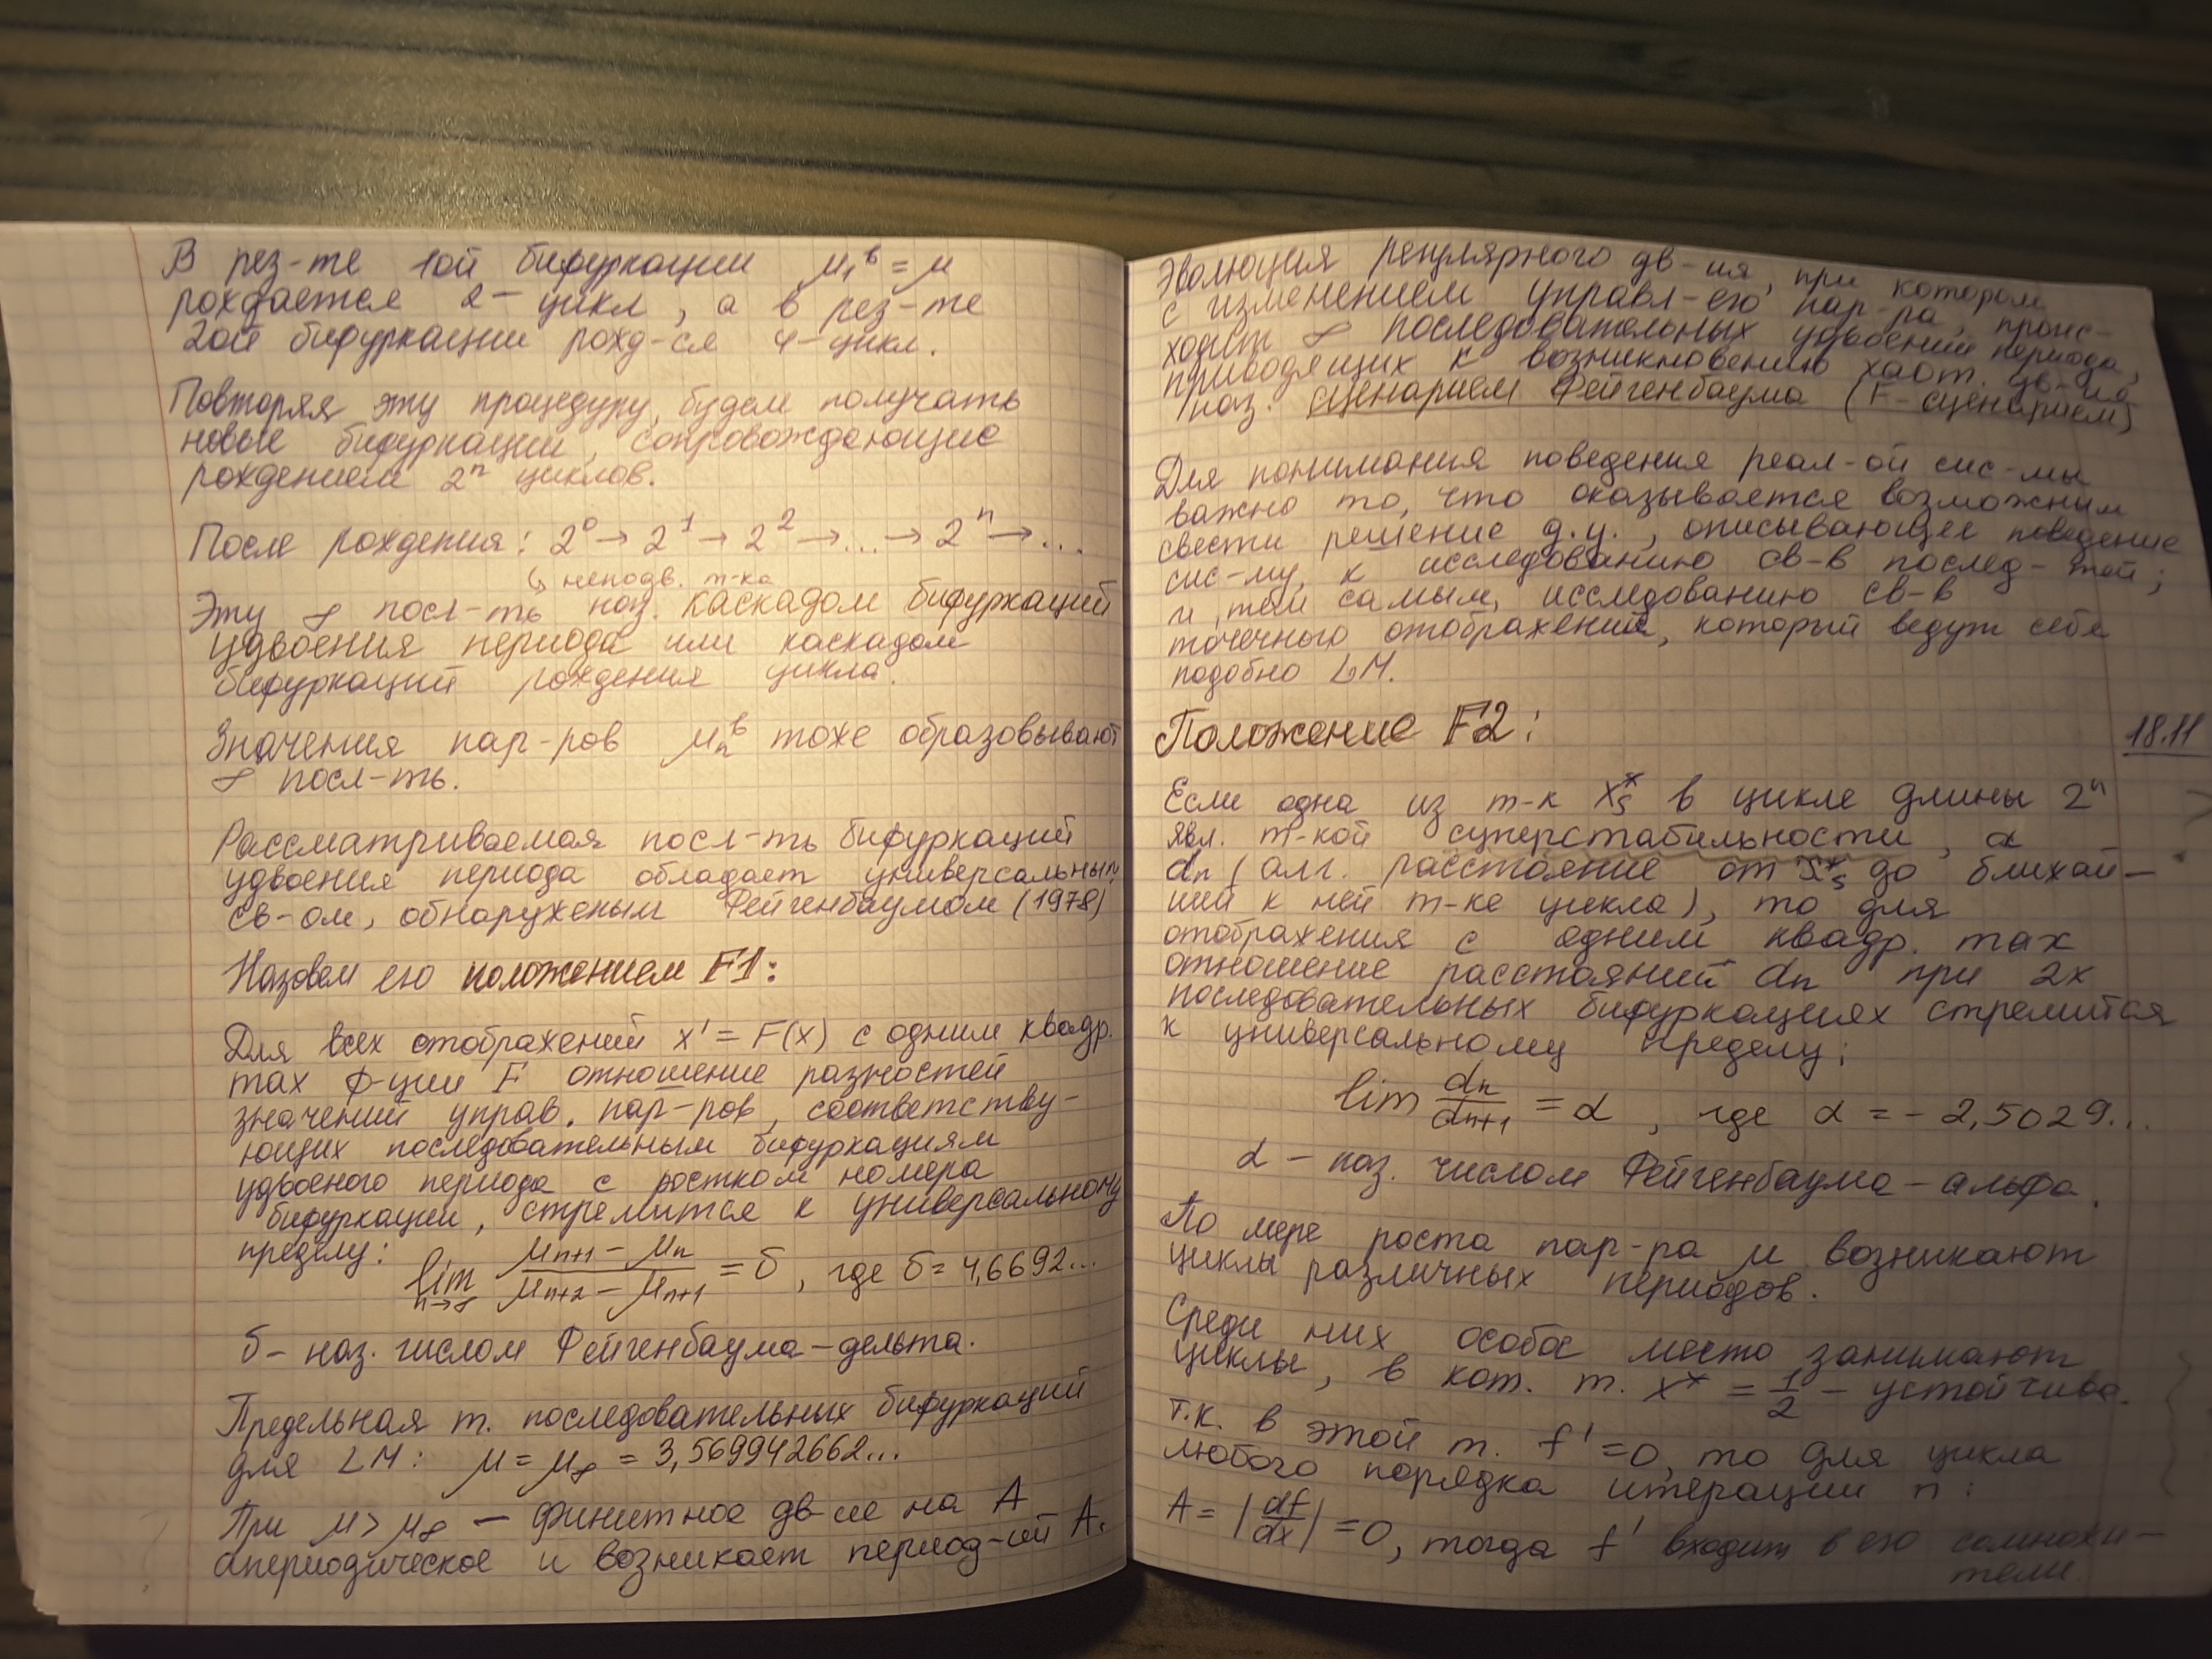 В рез-те 1ой бифуркации μ₁ᵇ = μ
рождается 2-цикл, а в рез-те
2ой бифуркации рожд-ся 4-цикл.
Повторяя эту процедуру, будем получать
новые бифуркации, сопровождающие
рождением 2ⁿ циклов.
После рождения: 2⁰ → 2¹ → 2² → ... → 2ⁿ → ...
↳ неподв. т-ка
Эту ∞ посл-ть наз. каскадом бифуркаций
удвоения периода или каскадом
бифуркаций рождения цикла.
Значения пар-ров μₙᵇ тоже образовывают
∞ посл-ть.
Рассматриваемая посл-ть бифуркаций
удвоения периода обладает универсальным
св-ом, обнаруженым Фейгенбаумом (1978)
Назовем его положением F1:
Для всех отображений x' = F(x) с одним квадр.
max ф-ции F отношение разностей
значений управ. пар-ров, соответству-
ющих последовательным бифуркациям
удвоеного периода с ростком номера
бифуркации, стремится к универсальному
пределу:
lim n→∞ (μₙ₊₁ − μₙ)/(μₙ₊₂ − μₙ₊₁) = δ, где δ = 4,6692...
δ – наз. числом Фейгенбаума-дельта.
Предельная т. последовательных бифуркаций
для LM: μ = μ∞ = 3,569942662...
При μ > μ∞ – финитное дв-ие на A
апериодическое и возникает период-ий A.
Эволюция регулярного дв-ия, при котором
с изменением управл-его пар-ра, проис-
ходит ∞ последовательных удвоений периода,
приводящих к возникновению хаот. дв-ия
наз. сценарием Фейгенбаума (F-сценарием)
Для понимания поведения реал-ой сис-мы
важно то, что оказывается возможным
свести решение д.у., описывающее поведение
сис-му, к исследованию св-в послед-тей;
и, тем самым, исследованию св-в
точечного отображений, который ведут себя
подобно LM.
Положение F2:
18.11
Если одна из т-к xₛ* в цикле длины 2ⁿ
явл. т-кой суперстабильности, а
dₙ (алг. расстояние от xₛ* до ближай-
шей к ней т-ке цикла), то для
отображения с одним квадр. max
отношение расстояний dₙ при 2х
последовательных бифуркациях стремится
к универсальному пределу:
lim dₙ/dₙ₊₁ = α, где α = −2,5029...
α – наз. числом Фейгенбаума-альфа.
По мере роста пар-ра μ возникают
циклы различных периодов.
Среди них особое место занимают
циклы, в кот. т. x* = 1/2 – устойчива.
т.к. в этой т. f' = 0, то для цикла
любого порядка итерации n:
A = |df/dx| = 0, тогда f' входит в его сомножи-
тели.